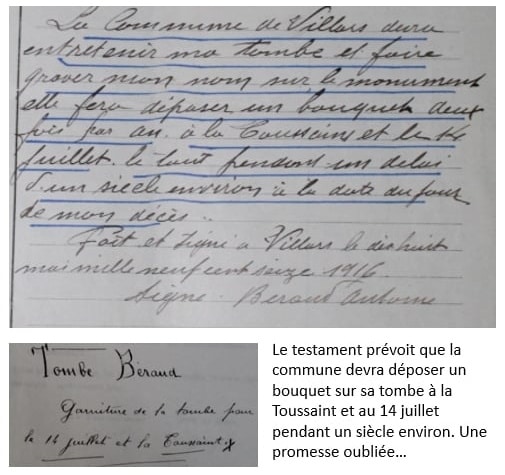 La Commune de Villars devra
entretenir ma tombe et faire
graver mon nom sur le monument
elle fera déposer un bouquet deux
fois par an. à la Toussaint et le 14
juillet. le tout pendant un délai
d'un siècle environ à la date du jour
de mon décès..
Fait et signé a Villars le dix huit
mai mille neuf cent seize 1916.
Signé. Beraud Antoine
Tombe Béraud
Garniture de la tombe pour
le 14 juillet et la Toussaint
Le testament prévoit que la
commune devra déposer un
bouquet sur sa tombe à la
Toussaint et au 14 juillet
pendant un siècle environ. Une
promesse oubliée...